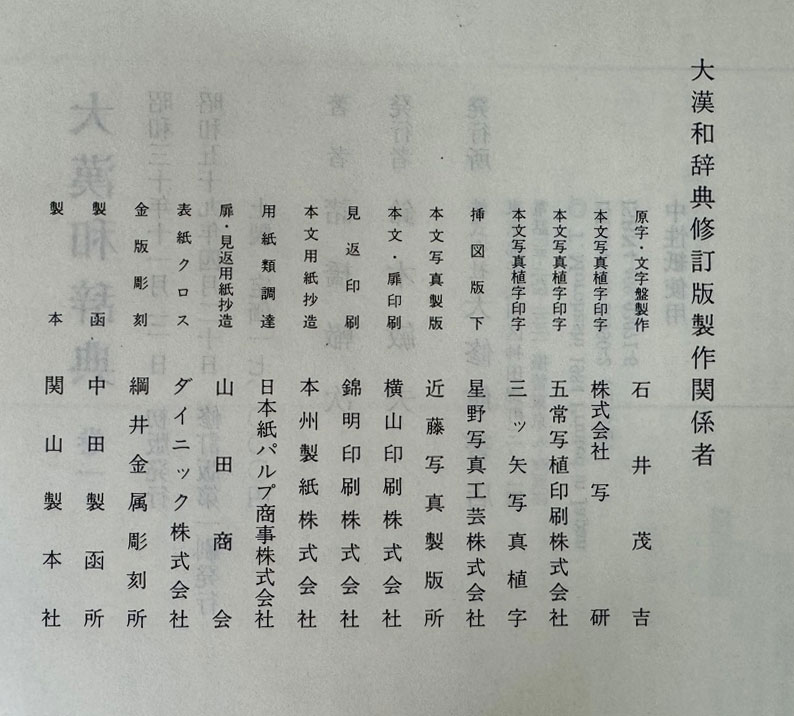 大漢和辞典修訂版製作関係者
原字・文字盤製作 石井茂吉
本文写真植字印字 株式会社写研
本文写真植字印字 五常写植印刷株式会社
本文写真植字印字 三ッ矢写真植字
挿図版下 星野写真工芸株式会社
本文写真製版 近藤写真製版所
本文・扉印刷 横山印刷株式会社
見返印刷 錦明印刷株式会社
本文用紙抄造 本州製紙株式会社
用紙類調達 日本紙パルプ商事株式会社
扉・見返用紙抄造 山田商会
表紙クロス ダイニック株式会社
金版彫刻 綱井金属彫刻所
製函 中田製函所
製本 関山製本社